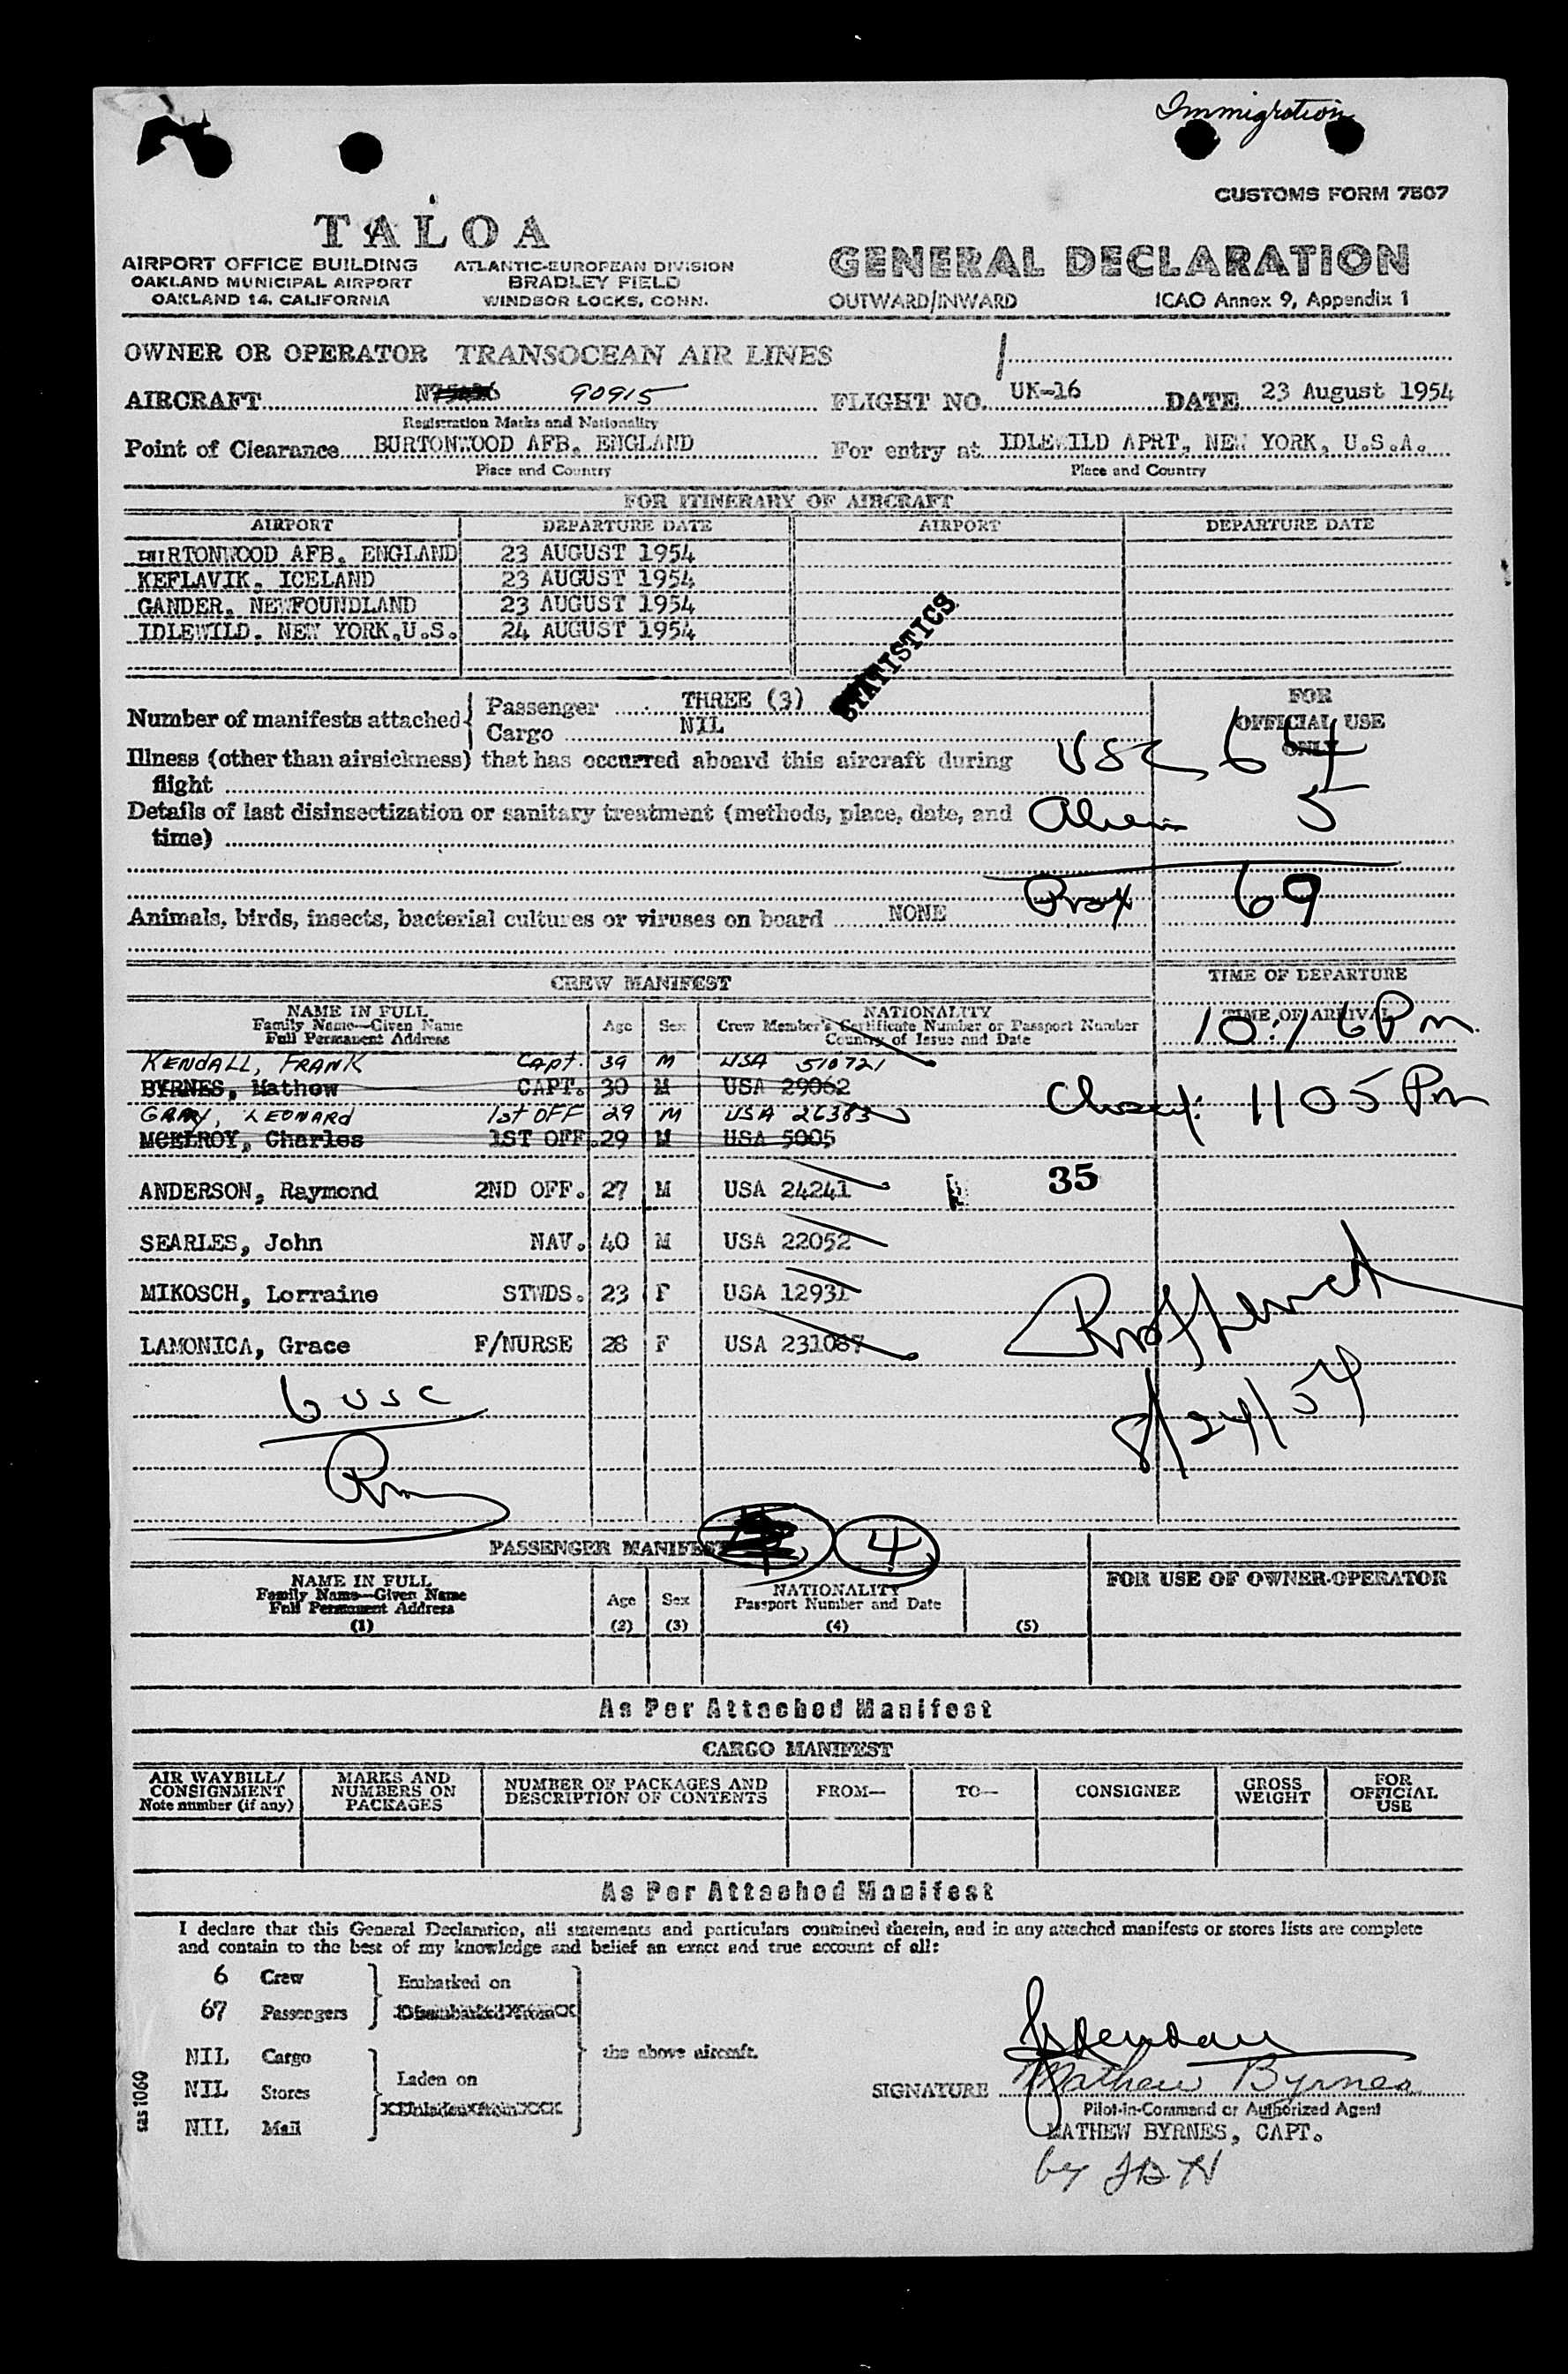 Immigration
CUSTOMS FORM 7507
TALOA
AIRPORT OFFICE BUILDING
OAKLAND MUNICIPAL AIRPORT
OAKLAND 14, CALIFORNIA
ATLANTIC-EUROPEAN DIVISION
BRADLEY FIELD
WINDSOR LOCKS, CONN.
GENERAL DECLARATION
OUTWARD/INWARD ICAO Annex 9, Appendix 1
OWNER OR OPERATOR TRANSOCEAN AIR LINES
AIRCRAFT 90915 FLIGHT NO. UK-16 DATE 23 August 1954
Registration Marks and Nationality
Point of Clearance BURTONWOOD AFB, ENGLAND For entry at IDLEWILD APRT, NEW YORK, U.S.A.
Place and Country Place and Country
FOR ITINERARY OF AIRCRAFT
AIRPORT DEPARTURE DATE AIRPORT DEPARTURE DATE
BURTONWOOD AFB. ENGLAND 23 AUGUST 1954
KEFLAVIK, ICELAND 23 AUGUST 1954
GANDER, NEWFOUNDLAND 23 AUGUST 1954
IDLEWILD. NEW YORK,U.S. 24 AUGUST 1954
STATISTICS
Number of manifests attached
Passenger THREE (3)
Cargo NIL
FOR
OFFICIAL USE
ONLY
Illness (other than airsickness) that has occurred aboard this aircraft during
flight
USC 64
Details of last disinsectization or sanitary treatment (methods, place, date, and
time)
Alien 5
69
Animals, birds, insects, bacterial cultures or viruses on board NONE
CREW MANIFEST
TIME OF DEPARTURE
NAME IN FULL
Family Name—Given Name
Full Permanent Address
Age Sex
NATIONALITY
Crew Member's Certificate Number or Passport Number
Country of Issue and Date
TIME OF ARRIVAL
10:16 Pm.
KENDALL, FRANK Capt. 39 M USA 510721
BYRNES, Mathew CAPT. 30 M USA 29062
1105 Pm
GRAY, LEONARD 1st OFF 29 M USA 26383
MCELROY, Charles 1ST OFF. 29 M USA 5005
35
ANDERSON, Raymond 2ND OFF. 27 M USA 24241
SEARLES, John NAV. 40 M USA 22052
MIKOSCH, Lorraine STWDS. 23 F USA 12931
LAMONICA, Grace F/NURSE 28 F USA 231087
6 USC
8/24/54
PASSENGER MANIFEST 4
NAME IN FULL
Family Name—Given Name
Full Permanent Address
(1)
Age
(2)
Sex
(3)
NATIONALITY
Passport Number and Date
(4)
(5)
FOR USE OF OWNER-OPERATOR
As Per Attached Manifest
CARGO MANIFEST
AIR WAYBILL/
CONSIGNMENT
Note number (if any)
MARKS AND
NUMBERS ON
PACKAGES
NUMBER OF PACKAGES AND
DESCRIPTION OF CONTENTS
FROM—
TO—
CONSIGNEE
GROSS
WEIGHT
FOR
OFFICIAL
USE
As Per Attached Manifest
I declare that this General Declaration, all statements and particulars contained therein, and in any attached manifests or stores lists are complete
and contain to the best of my knowledge and belief an exact and true account of all:
6 Crew
67 Passengers
Embarked on
Disembarked from
NIL Cargo
NIL Stores
NIL Mail
Laden on
Unladen from
the above aircraft.
sas1060
SIGNATURE Mathew Byrnes
Pilot-in-Command or Authorized Agent
MATHEW BYRNES, CAPT.
by JBH